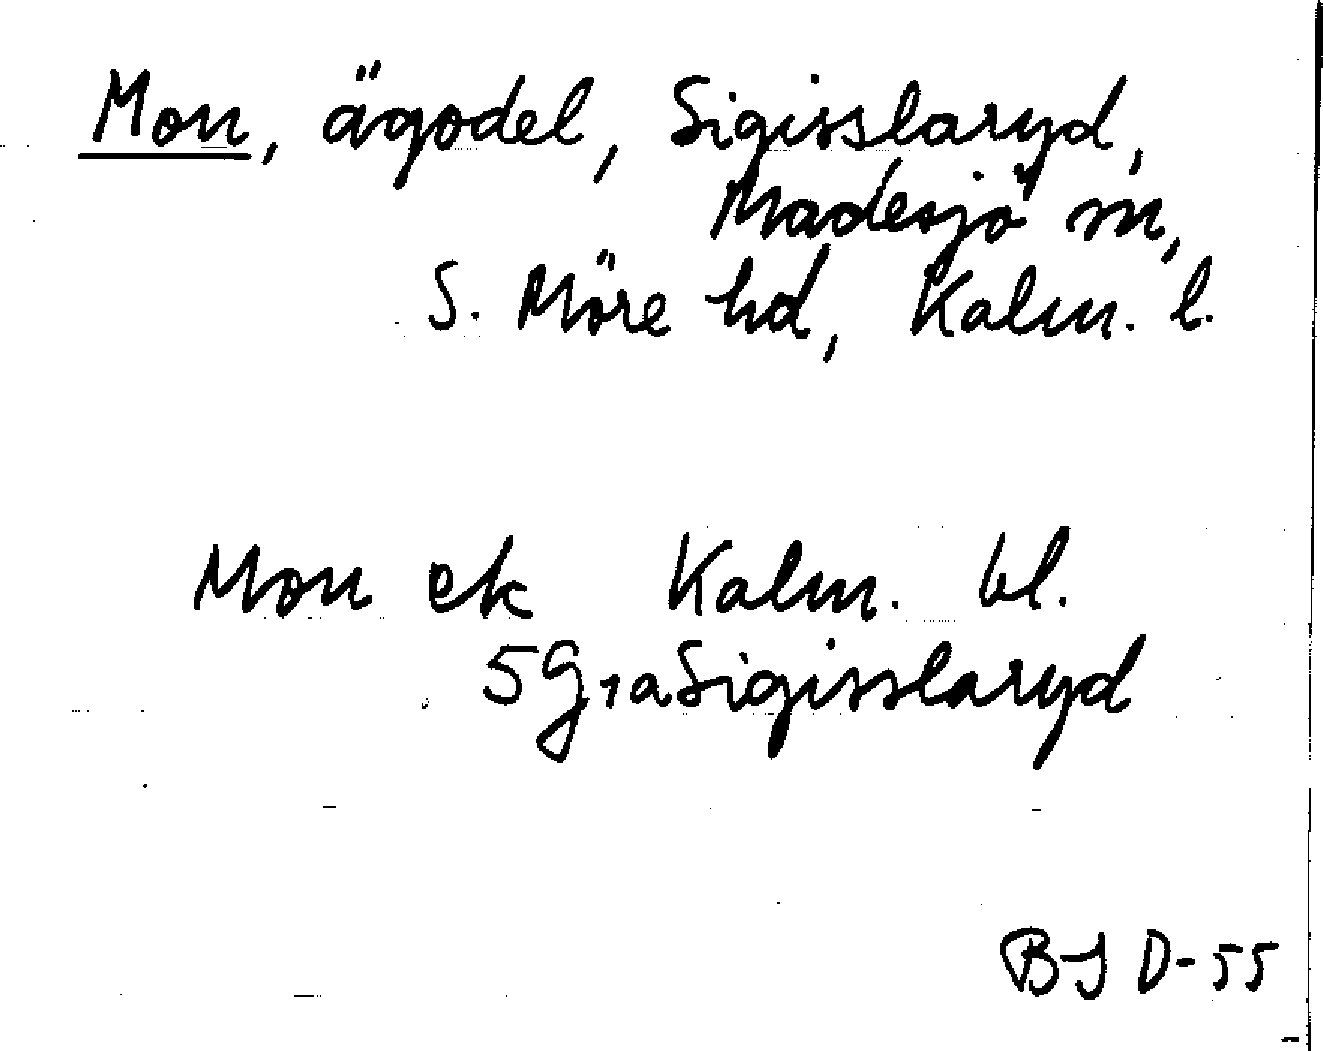 Mon, ägodel, Sigisslaryd,
Madesjö sn,
S. Möre hd, Kalm. l.
Mon ek Kalm. bl.
5 G 1 a Sigisslaryd
BJ D-55